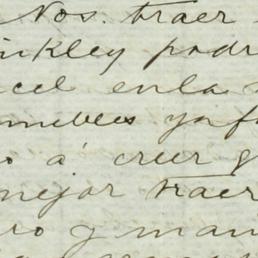 Nos. traer
inkley podr
cel en la
muebles ya f
o á creer q
mejor traer
ro y man